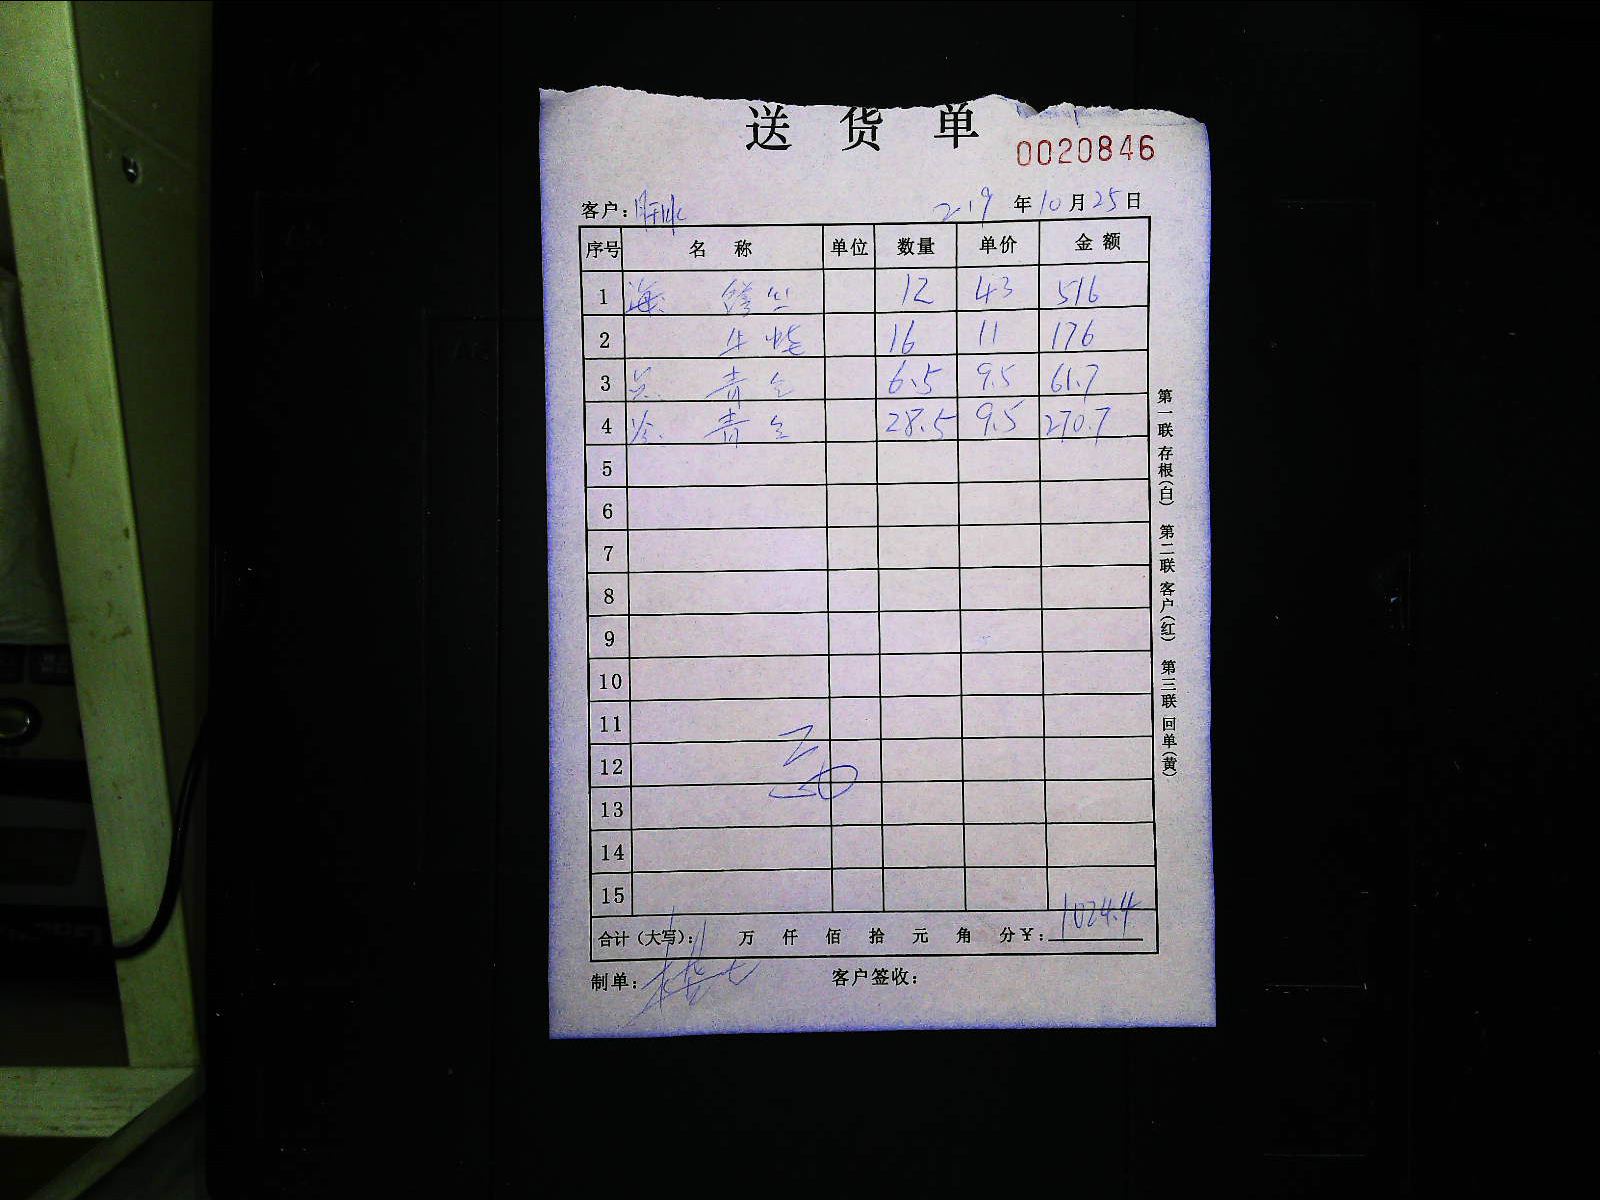 送 货 单
0020846
客户: 2019 年 10 月 25 日
序号 名 称 单位 数量 单价 金 额
1 海. 12 43 516
2 16 11 176
3 关. 青仝 6.5 9.5 61.7
4 冷. 青仝 28.5 9.5 270.7
5
6
7
8
9
10
11
12
13
14
15
合计(大写): 万 仟 佰 拾 元 角 分 ¥: 1024.4
制单: 客户签收:
第一联 存根(白) 第二联 客户(红) 第三联 回单(黄)